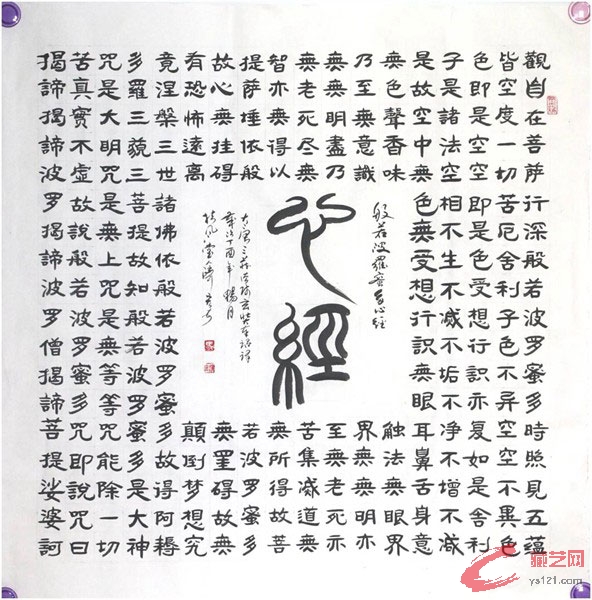 觀自在菩萨行深般若波罗蜜多時照見五蕴
皆空度一切苦厄舍利子色不异空空不異色
色即是空空即是色受想行識亦复如是舍利
子是諸法空相不生不滅不垢不净不增不減
是故空中無色無受想行識無眼耳鼻舌身意
無色聲香味
触法無眼界
乃至無意識
界無無明亦
無無明盡乃
至無老死亦
無老死尽無
苦集滅道無
智亦無得以
無所得故菩
提萨埵依般
若波罗蜜多
故心無挂碍
無罣碍故無
有恐怖遠离
顛倒梦想究
竟涅槃三世諸佛依般若波罗蜜多故得阿耨
多羅三藐三菩提故知般若波罗蜜多是大神
咒是大明咒是無上咒是無等等咒能除一切
苦真實不虛故説般若波罗蜜多咒即説咒曰
揭諦揭諦波罗揭諦波罗僧揭諦菩提娑婆訶
般若波羅蜜多心經
心經
大唐三藏法師玄奘奉詔譯
歲次丁酉年楊月
艺网
ys121.com